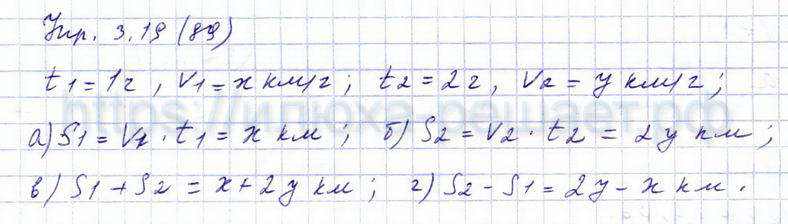 Упр. 3.19 (89)
t1=1ч, v1=x км/ч; t2=2ч, v2=y км/ч;
а) S1=v1·t1=x км; б) S2=v2·t2=2y км;
в) S1+S2=x+2y км; г) S2-S1=2y-x км.
https://илюха-решает.рф